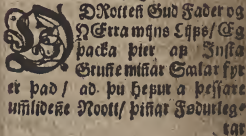 DRotten Gud Fader og
HErra mijns Lijfs / Eg
þacka þier af Jnsta
Grunne minnar Sælar fyr
er þad / ad þu hefur a þessare
umlidenne Noott / þinnar Födurlege
rar